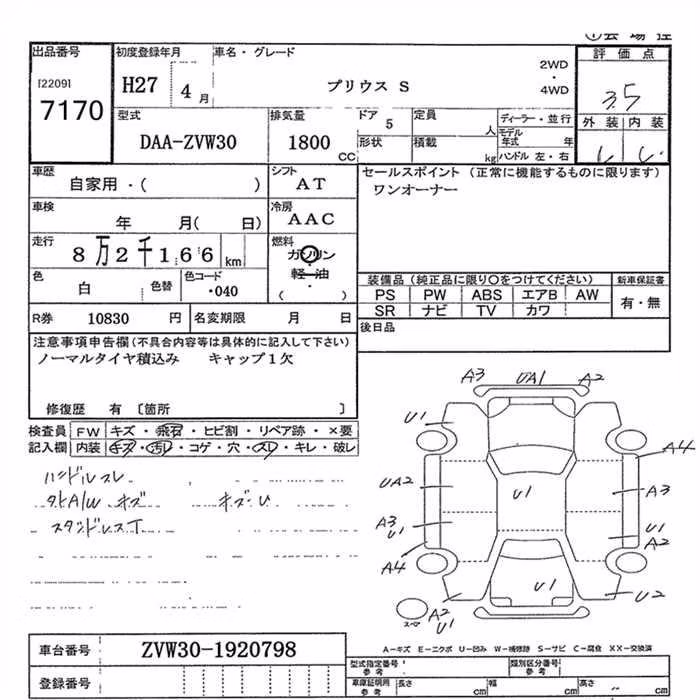 出品番号 初度登録年月 車名・グレード 評価点
[2209] H27 4月 プリウス S 2WD・4WD 3.5
7170
型式 排気量 ドア 5 定員 人 ディーラー・並行 外装 内装
DAA-ZVW30 1800 CC 形状 積載 kg モデル年式 年 ハンドル 左・右
車歴 自家用・( ) シフト AT セールスポイント (正常に機能するものに限ります)
ワンオーナー
車検 年 月( 日) 冷房 AAC
走行 8万2千166 km 燃料 ガソリン
軽・油
・
( )
色 白 色替 色コード ・040
装備品 (純正品に限り○をつけてください) 新車保証書
PS PW ABS エアB AW 有・無
SR ナビ TV カワ
R券 10830 円 名変期限 月 日 後日品
注意事項申告欄(不具合内容等は具体的に記入して下さい)
ノーマルタイヤ積込み キャップ1欠
修復歴 有 〔箇所 〕
検査員 FW キズ・飛石・ヒビ割・リペア跡・×要
記入欄 内装 キズ・汚レ・コゲ・穴・スレ・キレ・破レ
ハンドルスレ
キズ・U
スタッドレスT
A3 UA1 A2
U1
A4
UA2 U1 A3
A3 U1 U1 A2
A4
U1 U2
スペア A2 U1
車台番号 ZVW30-1920798
登録番号
A-キズ E-エクボ U-凹み W-補修跡 S-サビ C-腐食 XX-交換済
型式指定番号 参考 類別区分番号 参考
車庫証明用 参考 長さ cm 幅 cm 高さ cm